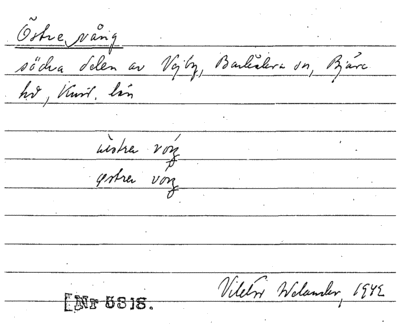 Östre vång
södra delen av Vejby, Barkåkra sn, Bjäre
hd, Krist. län
östra vång
[Nr 5818.
Viktor Welander, 1942